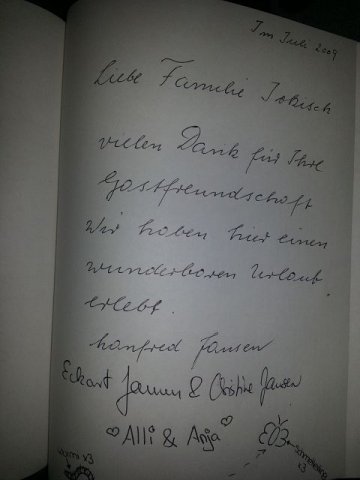 Im Juli 2009
Liebe Familie Jokisch
vielen Dank für Ihre
Gastfreundschaft
Wir haben hier einen
wunderbaren Urlaub
erlebt.
Manfred Jansen
Eckart Jansen & Christine Jansen
♡ Alli & Anja ♡
Schmetterling
x3
x3